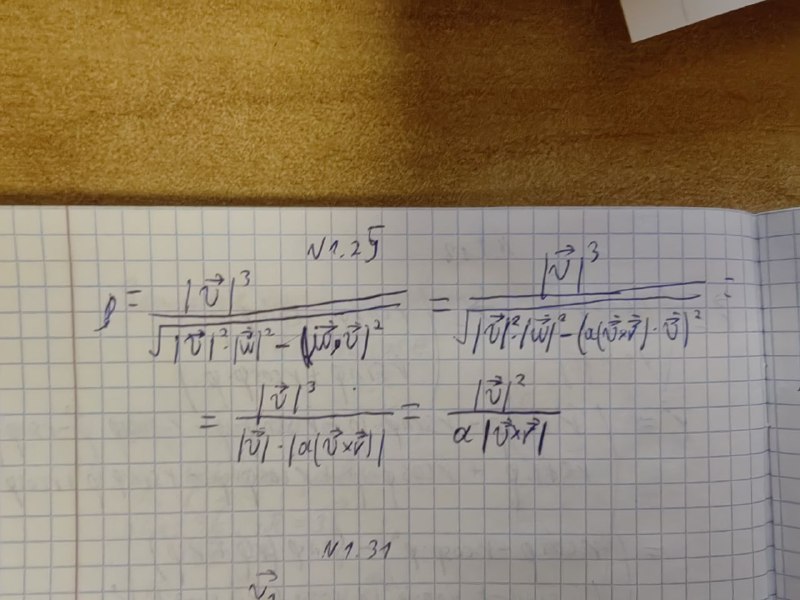 N1.29
ρ = |v⃗|³ / √(|v⃗|²·|w⃗|² − (w⃗, v⃗)²) = |v⃗|³ / √(|v⃗|²·|w⃗|² − (α(v⃗×r⃗)·v⃗)²) =
= |v⃗|³ / (|v⃗|·|α(v⃗×r⃗)|) = |v⃗|² / (α|v⃗×r⃗|)
N1.31